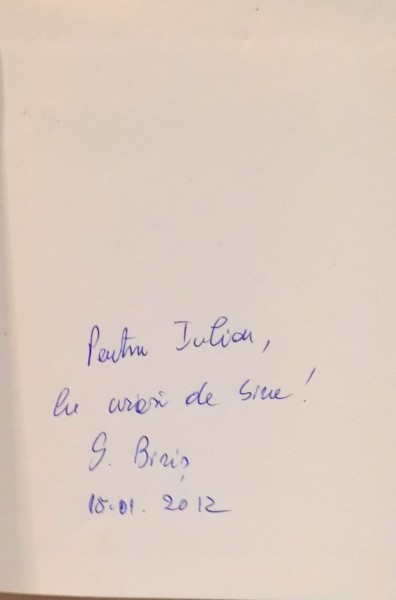 Pentru Iulian,
Cu urări de bine!
G. Biriș
18.01.2012